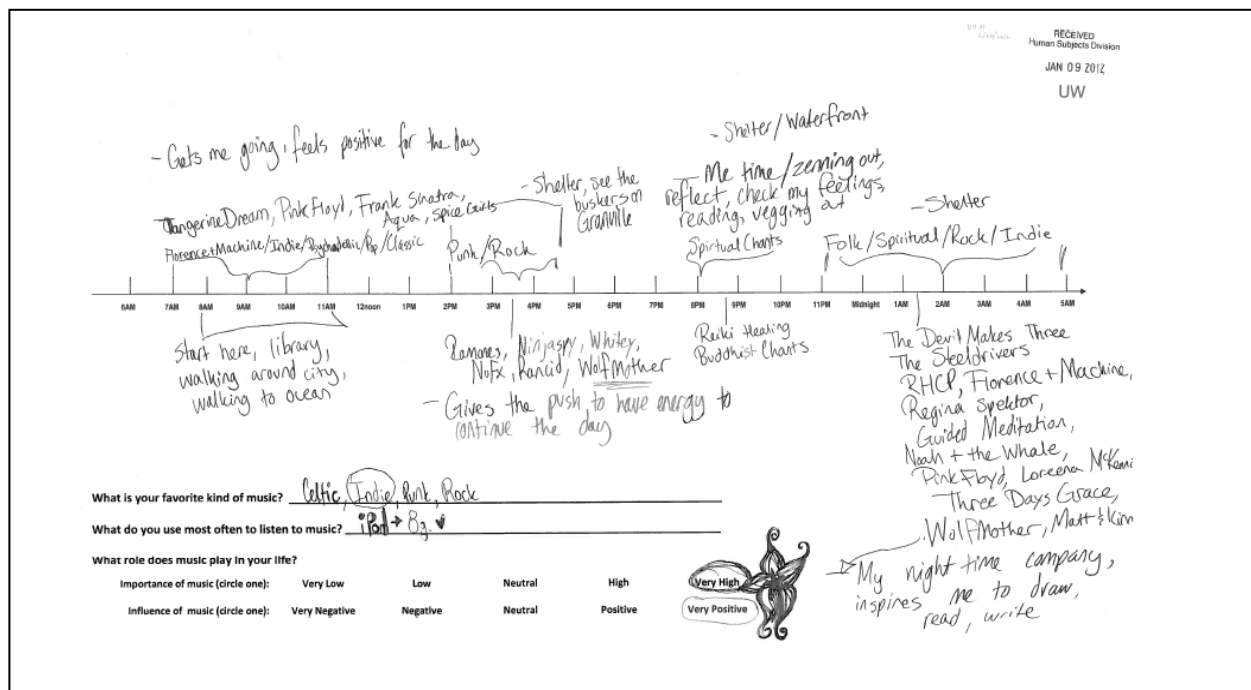 RECEIVED
Human Subjects Division
JAN 09 2012
UW
- Gets me going, feels positive for the day
Tangerine Dream, Pink Floyd, Frank Sinatra,
Aqua, Spice Girls
Florence + Machine/Indie/Psychadelic/Pop/Classic
Punk/Rock
- Shelter, see the
buskers on
Granville
- Shelter/Waterfront
- Me time/zenning out,
reflect, check my feelings,
reading, vegging out
Spirtual Chants
- Shelter
Folk/Spiritual/Rock/Indie
6AM 7AM 8AM 9AM 10AM 11AM 12noon 1PM 2PM 3PM 4PM 5PM 6PM 7PM 8PM 9PM 10PM 11PM Midnight 1AM 2AM 3AM 4AM 5AM
Start here, library,
walking around city,
walking to ocean
Ramones, Ninjaspy, Whitey,
NoFx, Rancid, WolfMother
- Gives the push to have energy to
continue the day
Reiki Healing
Buddhist Chants
The Devil Makes Three
The Steeldrivers
RHCP, Florence + Machine,
Regina Spektor,
Guided Meditation,
Noah + the Whale,
Pink Floyd, Loreena
Three Days Grace,
WolfMother, Matt & Kim
My night time company,
inspires me to draw,
read, write
What is your favorite kind of music? Celtic, Indie, Punk, Rock
What do you use most often to listen to music? iPod → 8g.
What role does music play in your life?
Importance of music (circle one): Very Low Low Neutral High Very High
Influence of music (circle one): Very Negative Negative Neutral Positive Very Positive